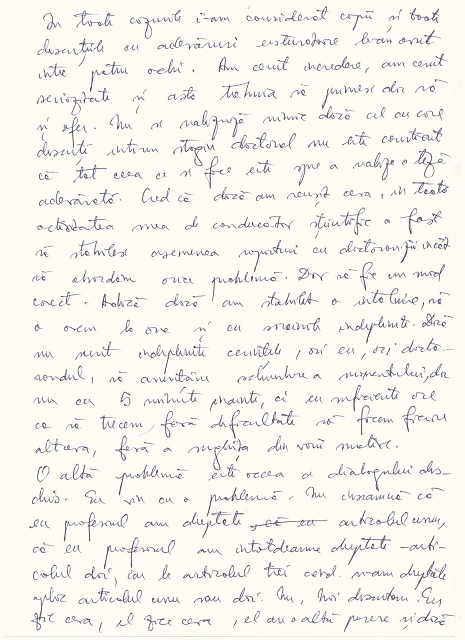 În toate cazurile i-am considerat copii și toate
discuțiile cu adevărat usturătoare le-am avut
între patru ochi. Am cerut încredere, am cerut
seriozitate și asta trebuia să primesc dar să
și ofer. Nu se realizează nimic dacă cel cu care
discuți într-un stagiu doctoral nu este convins
că tot ceea ce se face este spre a realiza o teză
adevărată. Cred că dacă am reușit ceva, în toată
activitatea mea de conducător științific a fost
să stabilesc asemenea raporturi cu doctoranzii încât
să abordăm orice problemă. Dar să fie un mod
corect. Adică dacă am stabilit o întâlnire, să
o avem la ore și cu sarcinile îndeplinite. Dacă
nu sunt îndeplinite cerințele, ori eu, ori docto-
randul, să anunțăm schimbarea momentului, dar
nu cu 5 minute înainte, ci cu suficiente ore
ca să trecem, fără dificultate să facem fiecare
altceva, fără a supăra din varii motive.
O altă problemă este aceea a dialogului des-
chis. Eu vin cu o problemă. Nu înseamnă că
eu profesorul am dreptate, că eu articolul unu,
că eu profesorul am întotdeauna dreptate - arti-
colul doi, iar la articolul trei când n-am dreptate
aplic articolul unu sau doi. Nu, noi discutăm. Eu
zic ceva, el zice ceva, el are o altă părere și dacă